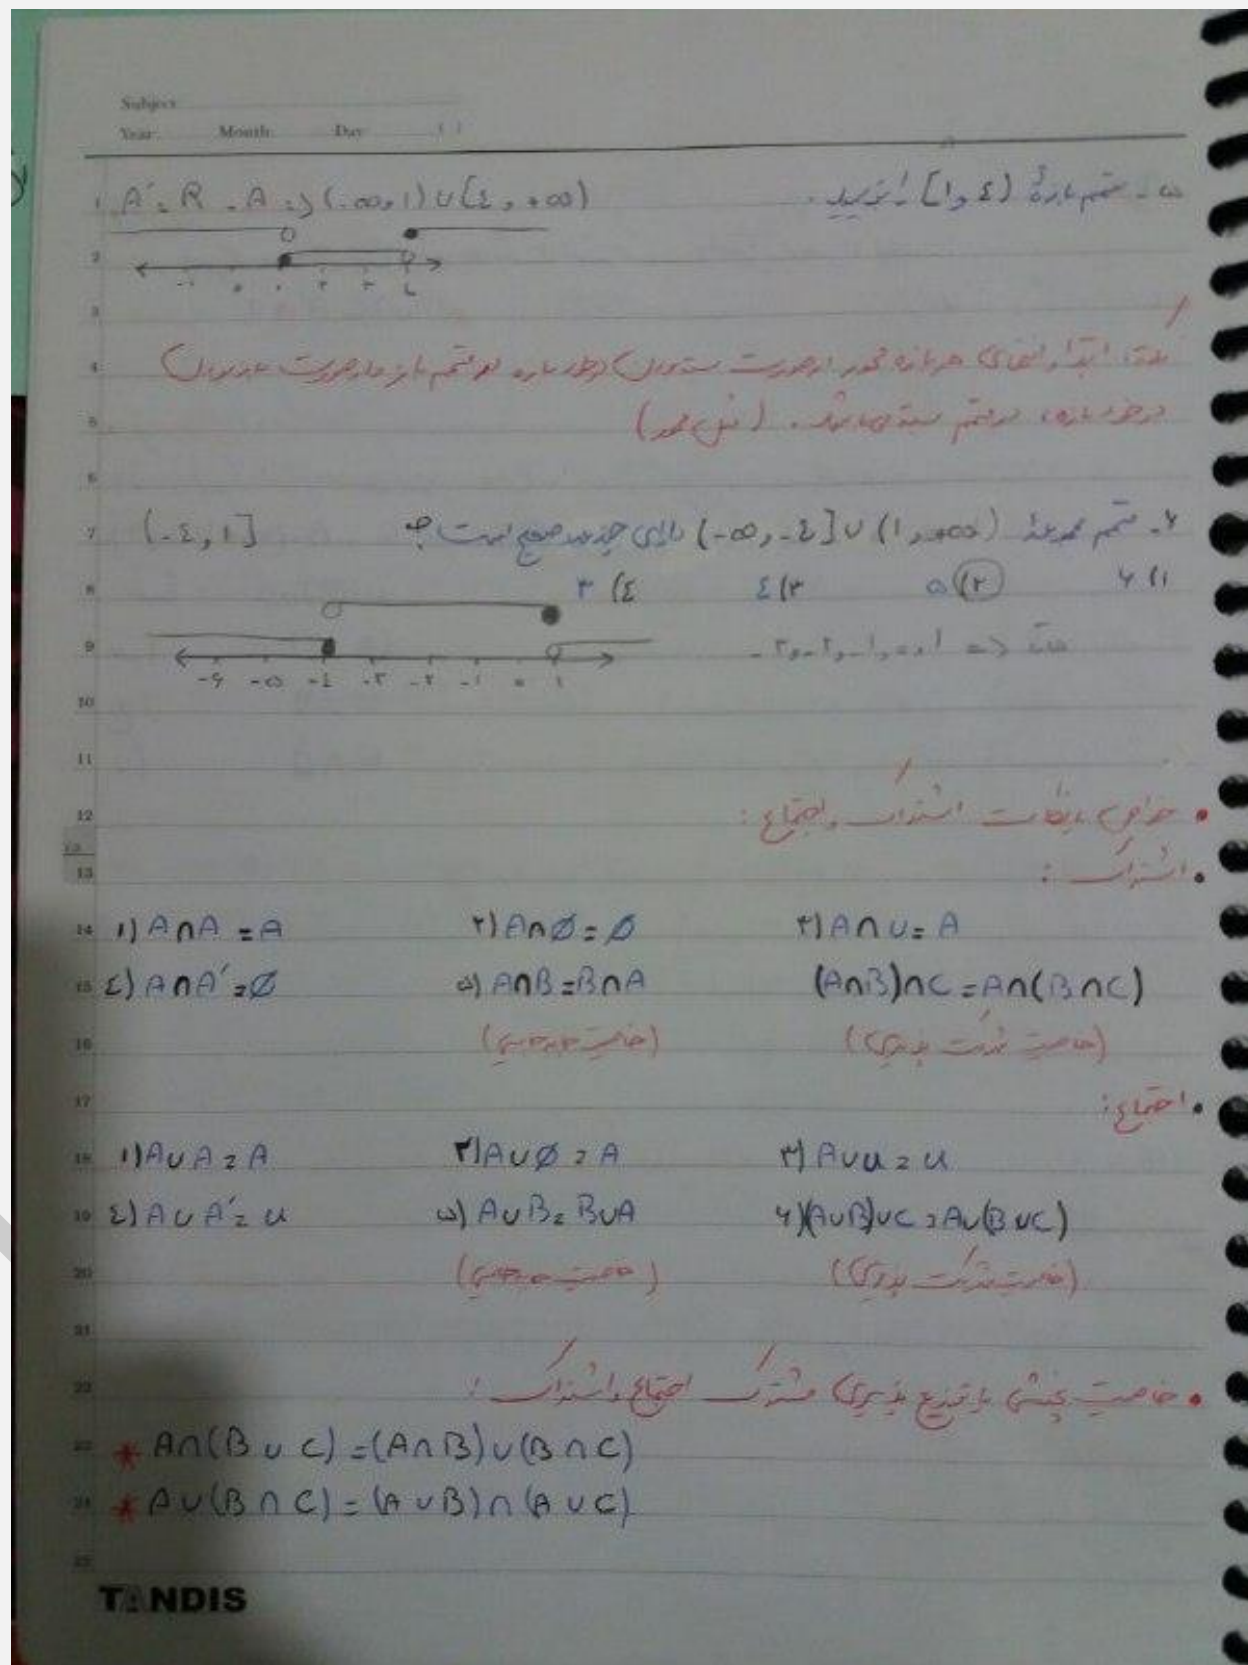 Subject:
Year: Month: Day: ( )
۵- متمم بازهٔ [۱,٤) را بنویسید.
A' = R - A => (-∞,۱) ∪ [٤,+∞)
-۱ ۰ ۱ ۲ ۳ ٤
نکته: ابتدا و انتهای هر بازه محور در صورت بسته بودن در خود بازه در متمم باز و در صورت باز بودن
در خود بازه، در متمم بسته می‌باشد. (مثل محور)
۶- متمم مجموعهٔ (-∞,-٤] ∪ (۱,+∞) دارای چند عدد صحیح است؟ (-٤,۱]
۱) ۶ ۲) ۵ ۳) ٤ ٤) ۳
-۳,-۲,-۱,۰,۱ <=
-۶ -۵ -٤ -۳ -۲ -۱ ۰ ۱
• خواص و نکات اشتراک و اجتماع:
• اشتراک:
۱) A∩A = A ۲) A∩Ø = Ø ۳) A∩U = A
٤) A∩A' = Ø ۵) A∩B = B∩A (A∩B)∩C = A∩(B∩C)
(خاصیت جابه‌جایی) (خاصیت شرکت پذیری)
• اجتماع:
۱) A∪A = A ۲) A∪Ø = A ۳) A∪U = U
٤) A∪A' = U ۵) A∪B = B∪A ۶) (A∪B)∪C = A∪(B∪C)
(خاصیت جابه‌جایی) (خاصیت شرکت پذیری)
• خاصیت پخشی یا توزیع پذیری مشترک اجتماع و اشتراک:
* A∩(B∪C) = (A∩B)∪(B∩C)
* A∪(B∩C) = (A∪B)∩(A∪C)
TANDIS